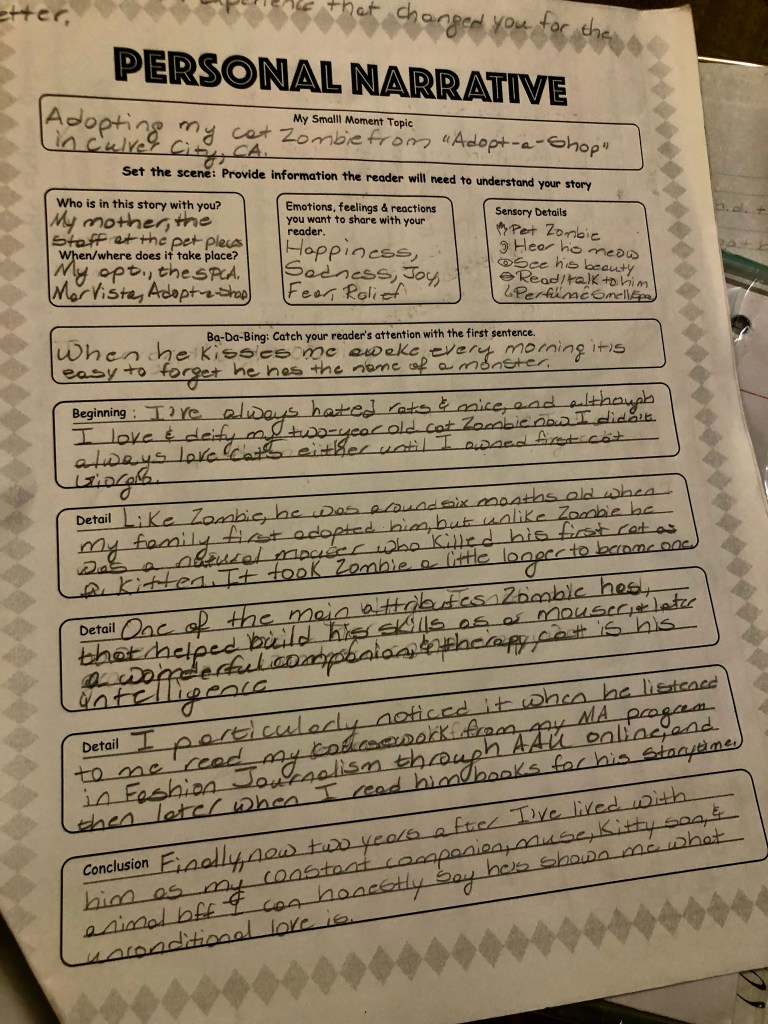 etter.
experience that changed you for the
PERSONAL NARRATIVE
My Smalll Moment Topic
Adopting my cat Zombie from "Adopt-a-Shop"
in Culver City, CA.
Set the scene: Provide information the reader will need to understand your story
Who is in this story with you?
My mother, the
staff at the pet places
When/where does it take place?
My apt., the SPCA,
Mar Vista, Adopt-a-Shop
Emotions, feelings & reactions
you want to share with your
reader.
Happiness,
Sadness, Joy,
Fear, Relief
Sensory Details
Pet Zombie
Hear his meow
See his beauty
Read/talk to him
Perfume Smell/Spa
Ba-Da-Bing: Catch your reader's attention with the first sentence.
When he kisses me awake every morning it is
easy to forget he has the name of a monster.
Beginning : I've always hated rats & mice, and although
I love & deify my two-year old cat Zombie now I didn't
always love cats either until I owned first cat
Giorgio.
Detail Like Zombie, he was around six months old when
my family first adopted him, but unlike Zombie he
was a natural mouser who killed his first rat as
a kitten. It took Zombie a little longer to become one.
Detail One of the main attributes Zombie has,
that helped build his skills as a mouser, & later
a wonderful companion, & therapy, cat is his
intelligence
Detail I particularly noticed it when he listened
to me read my coursework from my MA program
in Fashion Journalism through AAU online, and
then later when I read him books for his storytime.
Conclusion Finally, now two years after I've lived with
him as my constant companion, muse, Kitty son, &
animal bff I can honestly say he's shown me what
unconditional love is.